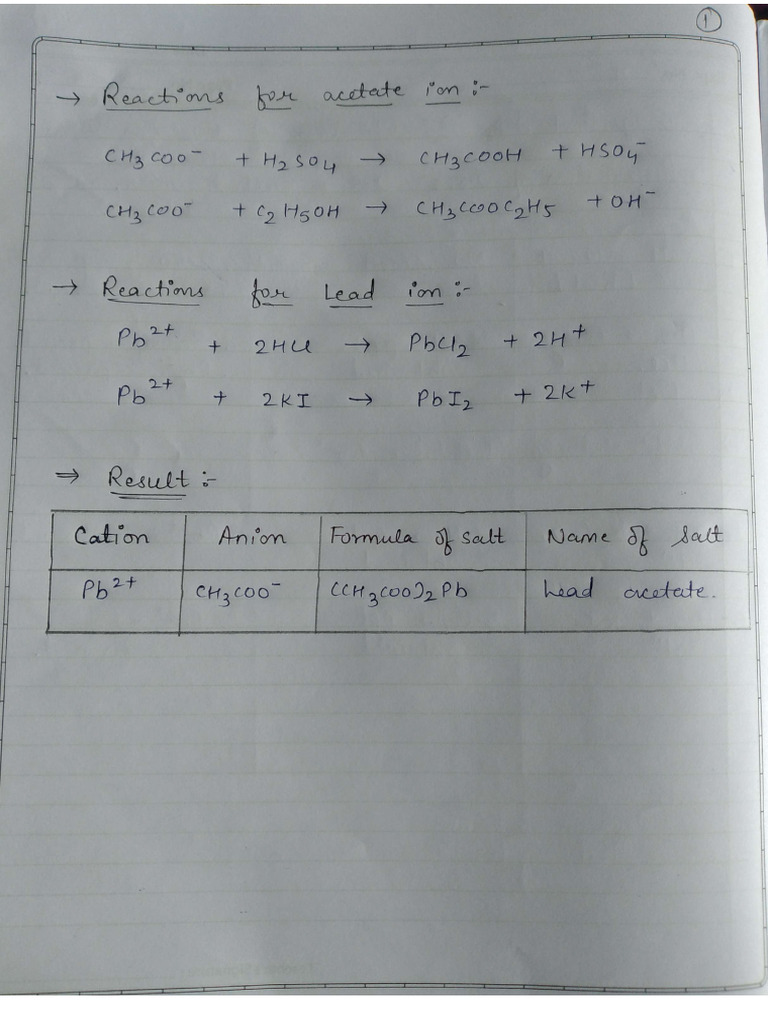 1
→ Reactions for acetate ion :-
CH3COO⁻ + H2SO4 → CH3COOH + HSO4⁻
CH3COO⁻ + C2H5OH → CH3COOC2H5 + OH⁻
→ Reactions for Lead ion :-
Pb²⁺ + 2HCl → PbCl2 + 2H⁺
Pb²⁺ + 2KI → PbI2 + 2K⁺
⇒ Result :-
Cation Anion Formula of salt Name of salt
Pb²⁺ CH3COO⁻ (CH3COO)2Pb Lead acetate.